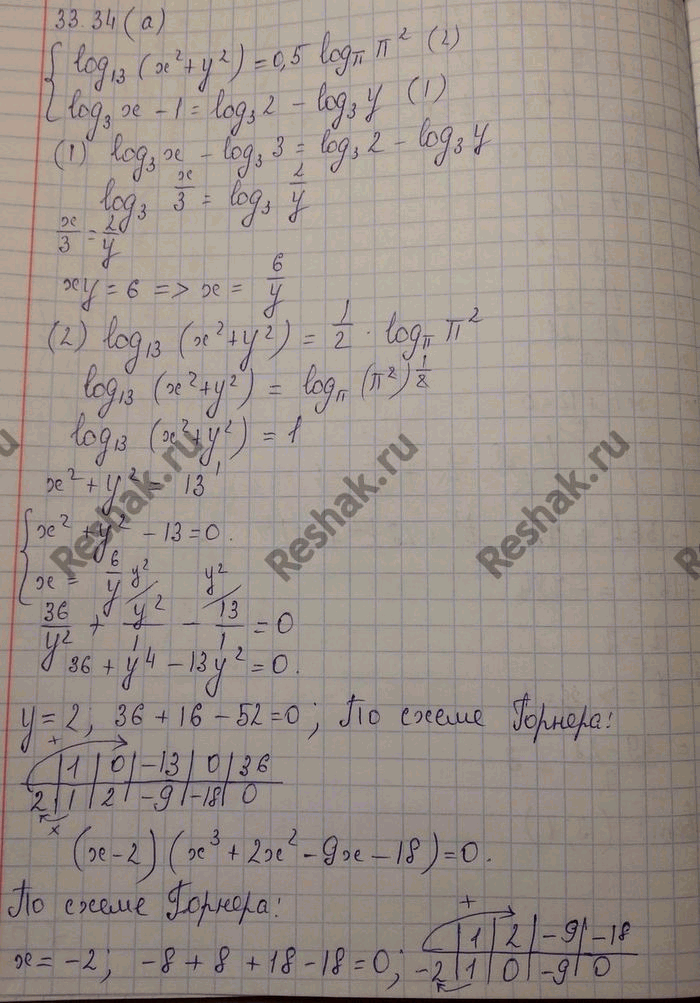 33.34(а)
{ log₁₃ (x² + y²) = 0,5 log_π π² (2)
log₃ x − 1 = log₃ 2 − log₃ y (1)
(1) log₃ x − log₃ 3 = log₃ 2 − log₃ y
log₃ x/3 = log₃ 2/y
x/3 = 2/y
xy = 6 => x = 6/y
(2) log₁₃ (x² + y²) = 1/2 · log_π π²
log₁₃ (x² + y²) = log_π (π²)^(1/2)
log₁₃ (x² + y²) = 1
x² + y² = 13¹
{ x² + y² − 13 = 0.
x = 6/y
36/y² + y²/1 (y²) − 13/1 (y²) = 0
36 + y⁴ − 13y² = 0.
y = 2; 36 + 16 − 52 = 0; По схеме Горнера:
+
| 1 | 0 | −13 | 0 | 36
2 | 1 | 2 | −9 | −18 | 0
x
(x − 2) (x³ + 2x² − 9x − 18) = 0.
По схеме Горнера:
x = −2; −8 + 8 + 18 − 18 = 0;
+
| 1 | 2 | −9 | −18
−2 | 1 | 0 | −9 | 0
Reshak.ru
Reshak.ru
Reshak.ru